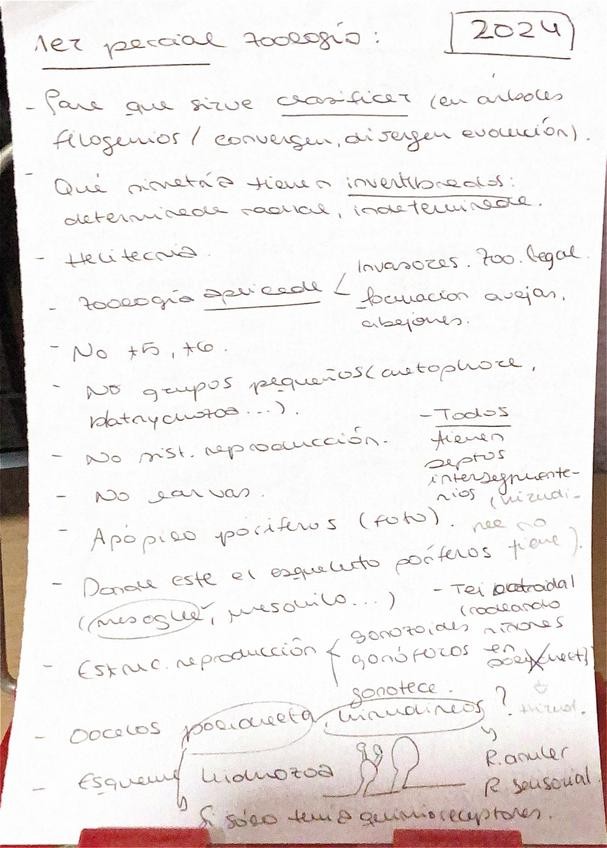 1er parcial zoología:
2024
- Para que sirve clasificar (en árboles
filogenios / convergen, divergen evolución).
- Qué simetría tienen invertebrados:
determinada radial, indeterminada.
- Helitecnia.
- zoología aplicada < Invasores. Zoo. legal.
formación avejas,
abejones.
- No t5, t6.
- No grupos pequeños (ctetophora,
platnychozoa...).
- No sist. reproducción.
- No larvas.
- Todos
tienen
septos
intersegmenta-
rios (hirudi-
nea no
tiene).
- Apópilo poríferos (foto).
- Donde este el esqueleto poríferos
(mesoglea, mesohilo...)
- Tej
(rodeando
riñones
en
- Estruc. reproducción < gonozoides
gonóforos
gonoteca.
- Ocelos poliqueta, hirudineos?
R. anular
R. sensorial
- Esquema hidrozoa
Si sólo tenía quimioreceptores.